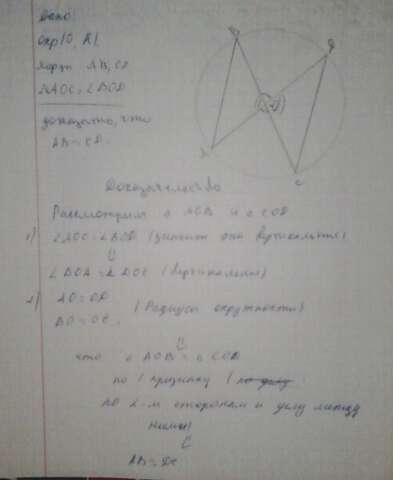 Дано:
окр(O, R)
хорды AB, CD
∠AOC = ∠BOD
доказать, что
AB = CD.
B
D
A
C
Доказательство
Рассмотрим △ AOB и △ COD
1) ∠AOC = ∠BOD (значит они вертикальные)
⇓
∠BOA = ∠DOC (вертикальные)
2) AO = OD
BO = OC, (Радиусы окружности)
⇓
что △ AOB = △ COD
по 1 признаку (по углу
по 2-м сторонам и углу между
ними)
⇓
AB = DC